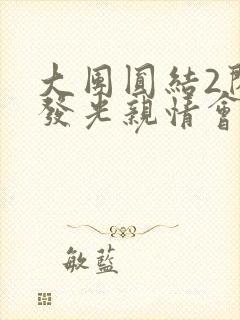 大團圓結2
發光親情會
敏藍